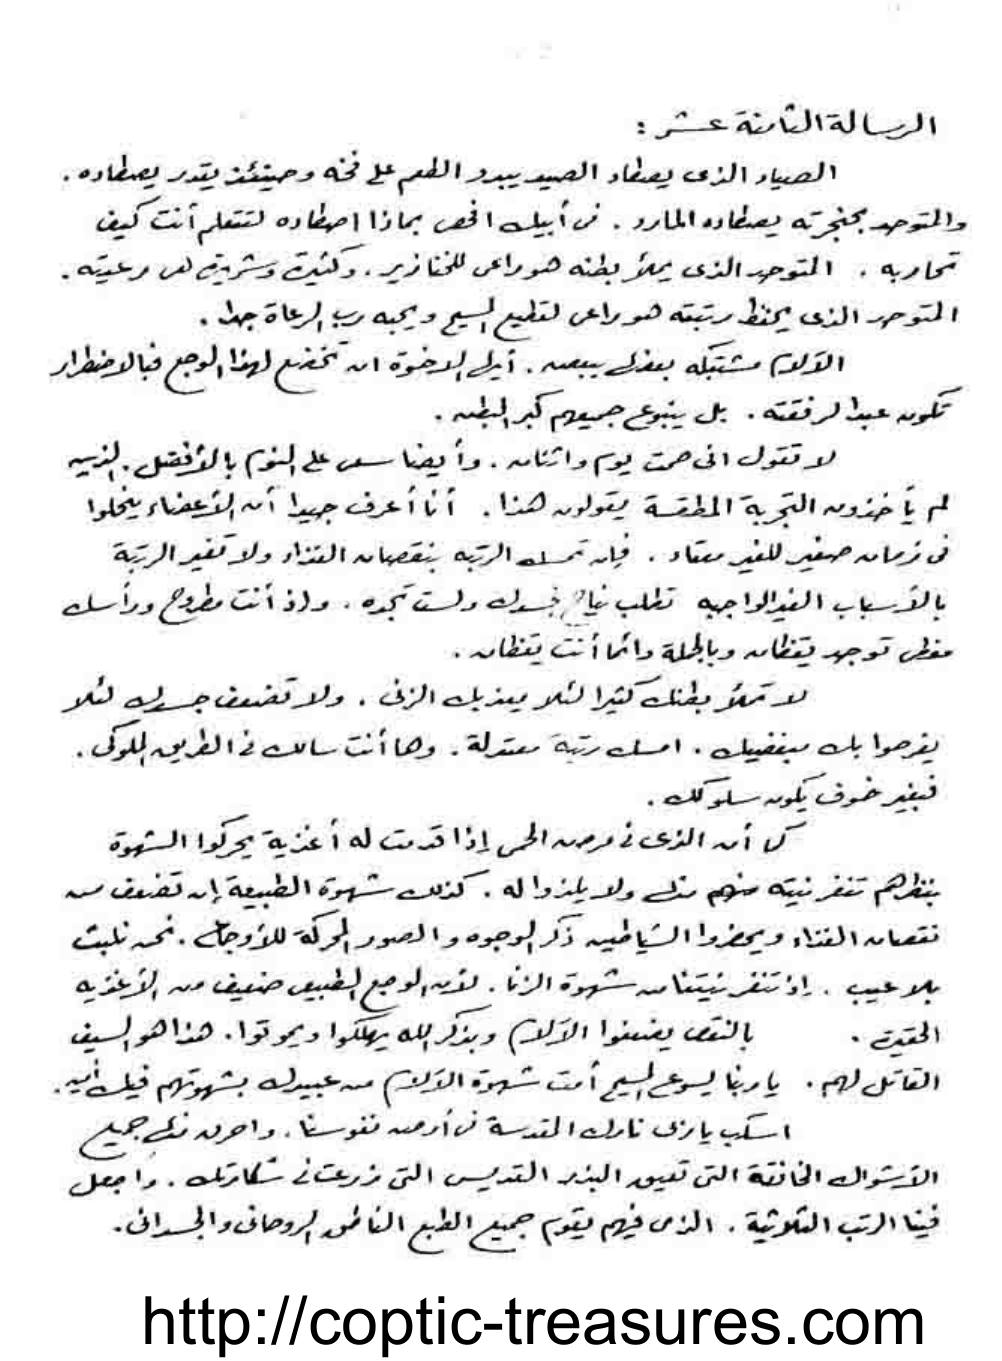 الرسالة الثامنة عشر :
الصياد الذى يصطاد الصيد يبدر الطعم على فخه وحينئذ يقدر يصطاده .
والمتوحد بحنجرته يصطاده المارد . من أبيك افحص بماذا اصطاده لتتعلم أنت كيف
تحاربه . المتوحد الذى يملأ بطنه هو راعى للخنازير . وكثيرة وشريرة هى رعيته .
المتوحد الذى يحفظ رتبته هو راعى لقطيع المسيح ويحبه رب الرعاة جدا .
الآلام مشتبكه بعضها ببعض . أيها الاخوة ان تخضع لهذا الوجع فبالاضطرار
تكون عبدا لرفقته . بل ينبوع جميعهم كبر البطن .
لا تقول انى صمت يوم واثنان . وأيضا على النوم بالأفضل . الذين
لم يأخذون التجربة الطقسة يقولون هذا . أنا أعرف جيدا أن الأعضاء ينحلوا
فى زمان صغير للغير معتاد . فإن تمسك الرتبه بنقصان الغذاء ولا تغير الرتبة
بالأسباب الغير الواجبه تطلب نياح لجسدك ولست تجده . وإذ أنت مطروح ورأسك
مغطى توجد يقظان وبالجملة دائما أنت يقظان .
لا تملأ بطنك كثيرا لئلا يعذبك الزنى . ولا تضعف جسدك لئلا
يفرحوا بك مبغضيك . امسك رتبة معتدلة . وها أنت سالك فى الطريق الملوكى .
فبغير خوف يكون سلوكك .
كما أن الذى فى مرض الحمى إذا قدمت له أغذية يحركوا الشهوة
بنظرهم تنفر نيته منها ولا يلذوا له . كذلك شهوة الطبيعة إن تضعف من
نقصان الغذاء ويحضروا الشياطين ذكر الوجوه والصور المحركة للأوجاع . نحن نلبث
بلا عيب . إذ تنفر نيتنا من شهوة الزنا . لأن الوجع الطبيعى ضعيف من الأغذيه
الحقيرة . بالنقص يضعفوا الآلام وبذكر الله يهلكوا ويموتوا . هذا هو السيف
القاتل لهم . يا ربنا يسوع المسيح أمت شهوة الآلام من عبيدك بشهوتهم فيك أمين .
اسكب يا ربى نارك المقدسة فى أرض نفوسنا . واحرق منها جميع
الأشواك الخانقة التى تعيق البذر القديس التى زرعت فى شكارتك . واجعل
فينا الرتب الثلاثية . الذى فيهم يقوم جميع الطبع الناطق الروحانى والجسدانى .
http://coptic-treasures.com